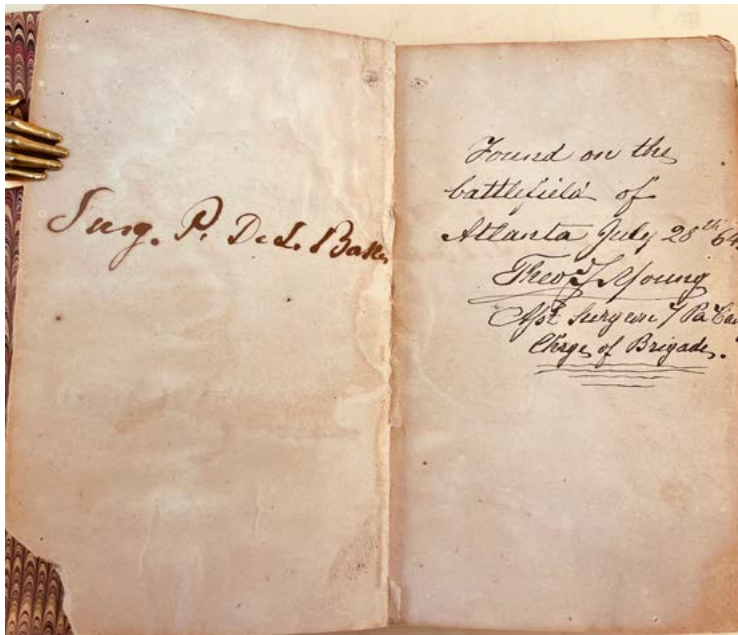 Surg. P. DeL. Baker
Found on the
battlefield of
Atlanta July 28th 64
Theo T. Young
Asst Surgeon 7 Pa Cav
Chrge of Brigade.